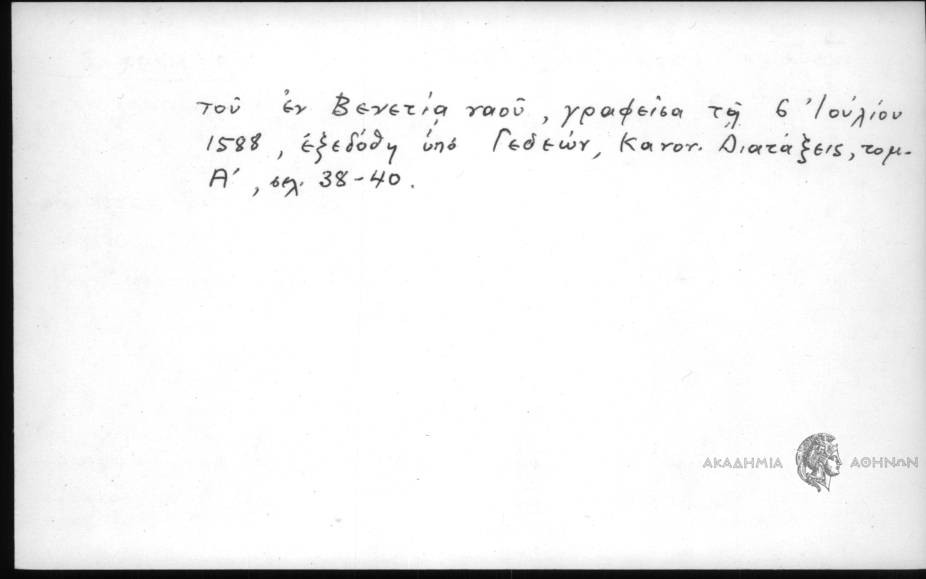 τοῦ ἐν Βενετίᾳ ναοῦ, γραφεῖσα τῇ 6 Ἰουλίου
1588, ἐξεδόθη ὑπό Γεδεών, Κανον. Διατάξεις, τομ.
Α', σελ. 38-40.
ΑΚΑΔΗΜΙΑ ΑΘΗΝΩΝ